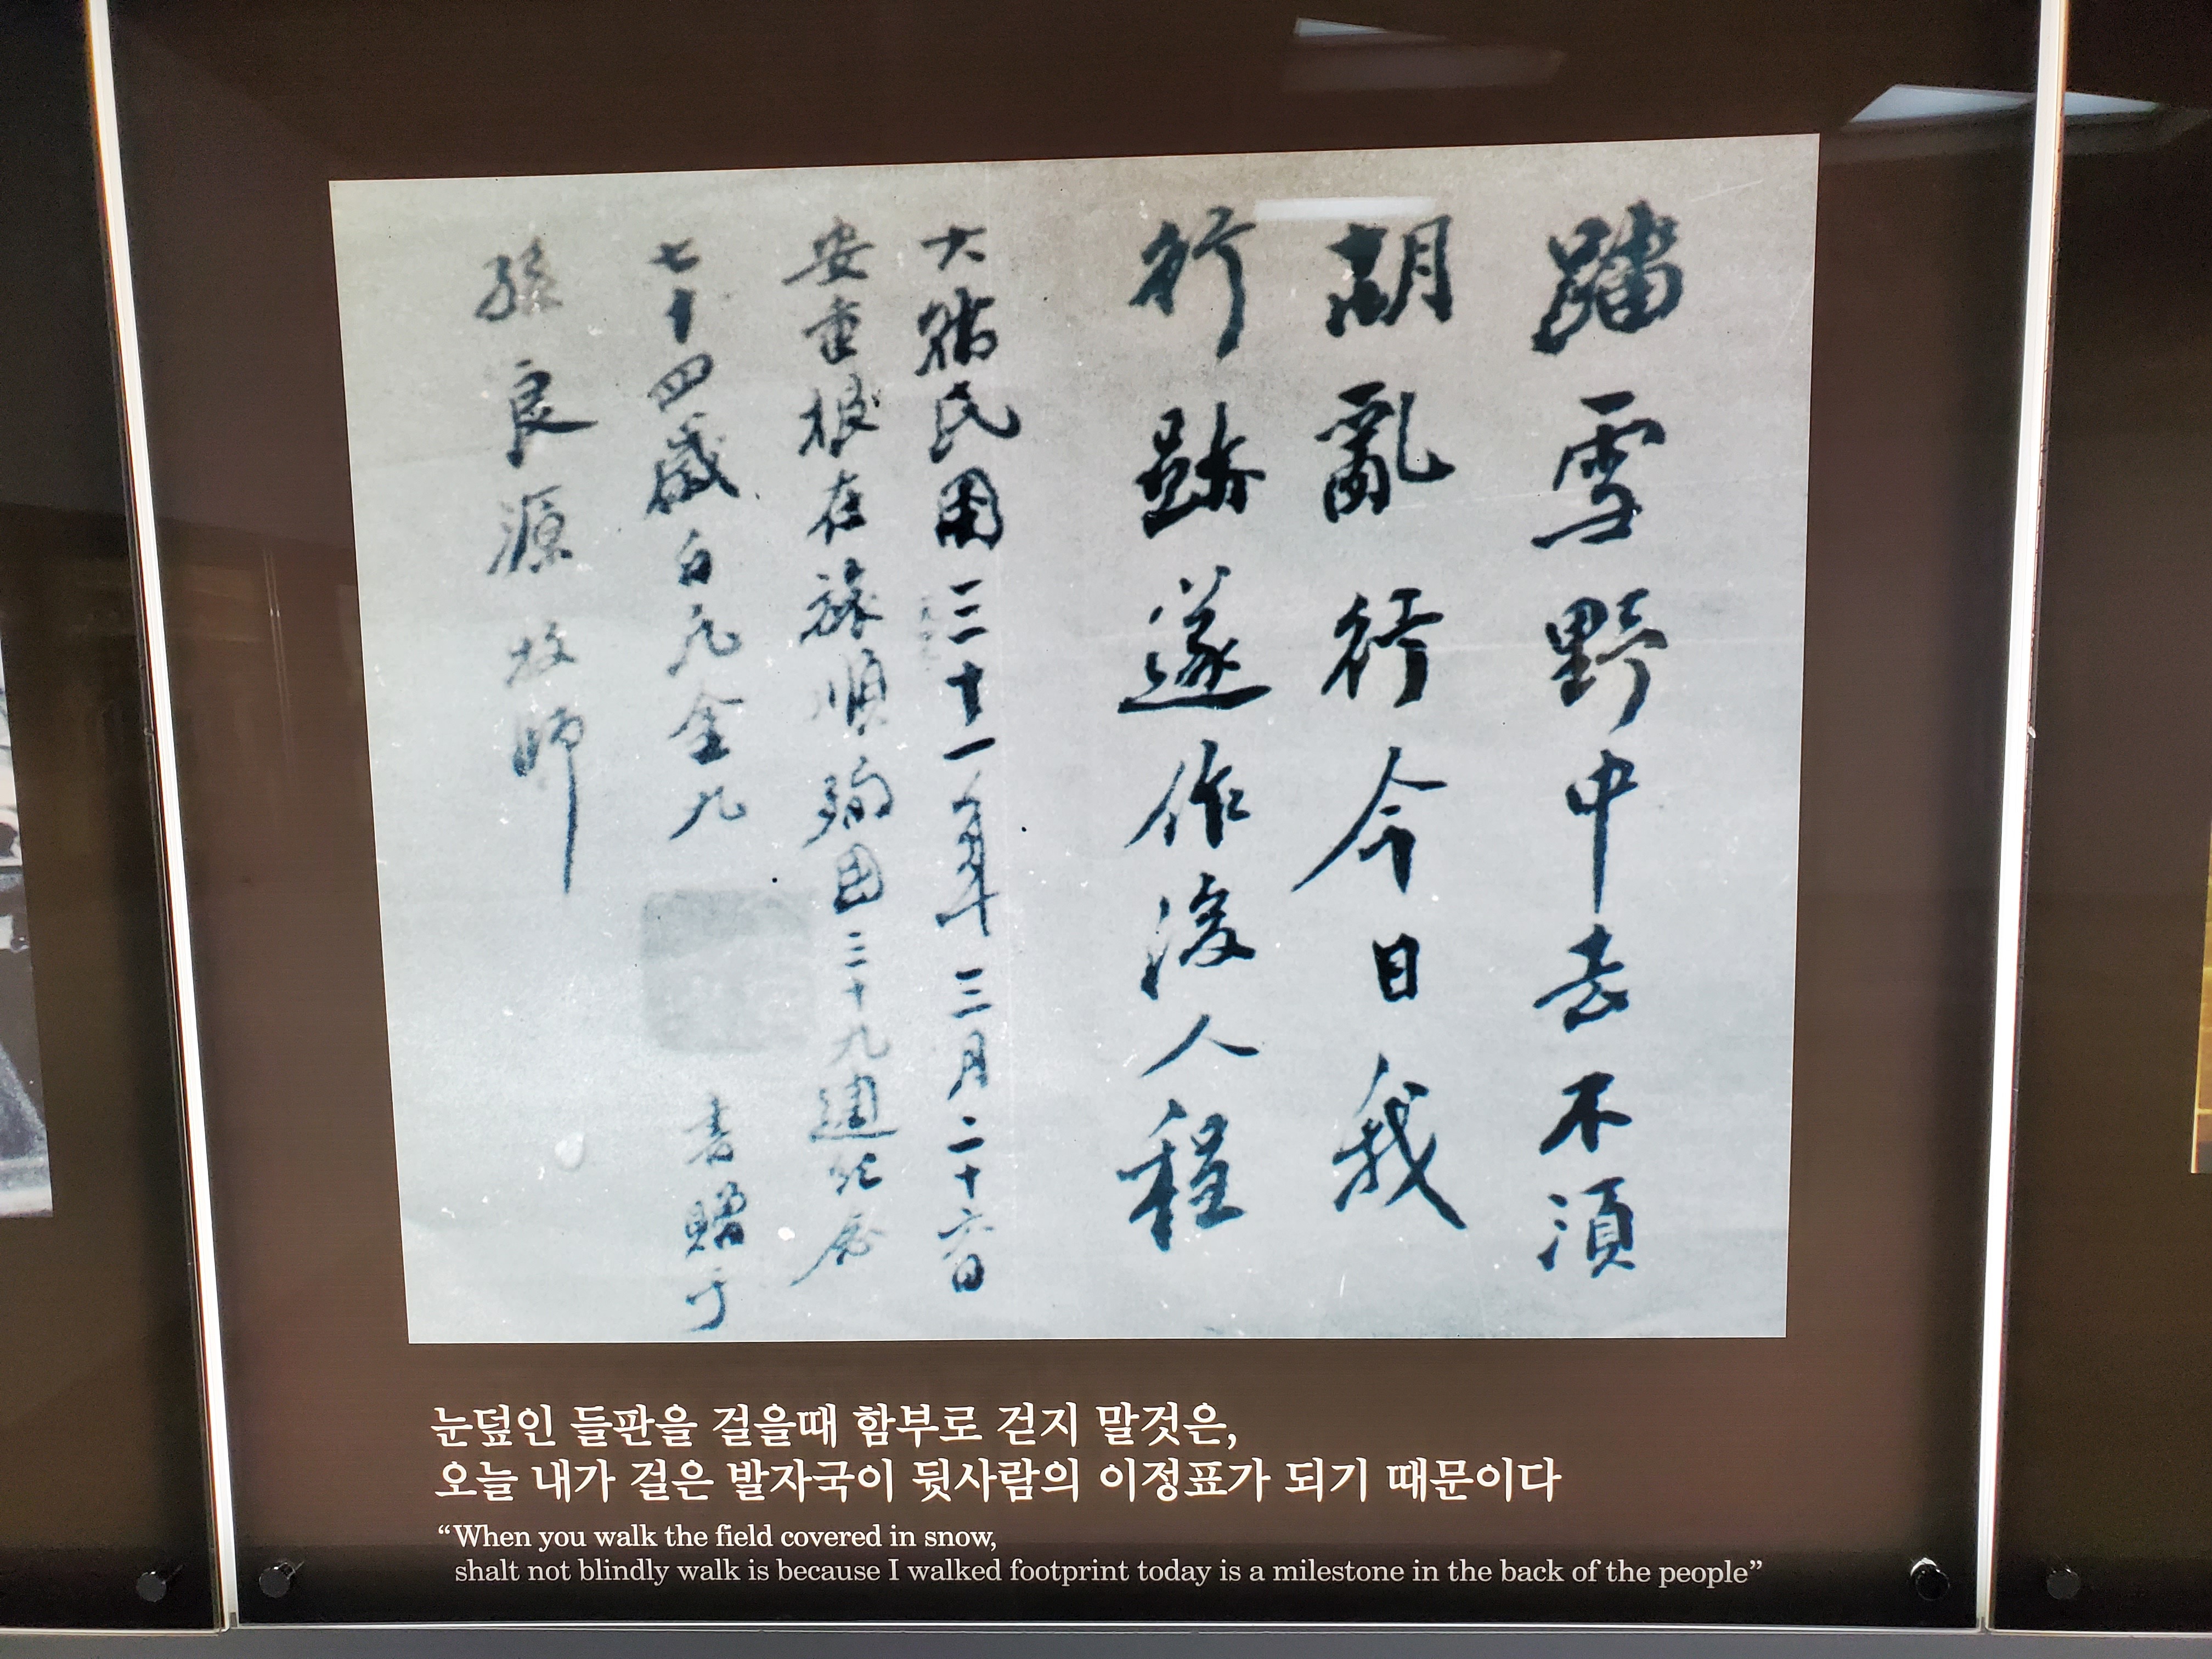 踏雪野中去不須
胡亂行今日我
行跡遂作後人程
大韓民國三十一年三月二十六日
安重根在旅順殉国三十九週紀念
七十四歲白凡金九
書贈于
孫良源牧師
눈덮인 들판을 걸을때 함부로 걷지 말것은,
오늘 내가 걸은 발자국이 뒷사람의 이정표가 되기 때문이다
“When you walk the field covered in snow,
shalt not blindly walk is because I walked footprint today is a milestone in the back of the people”